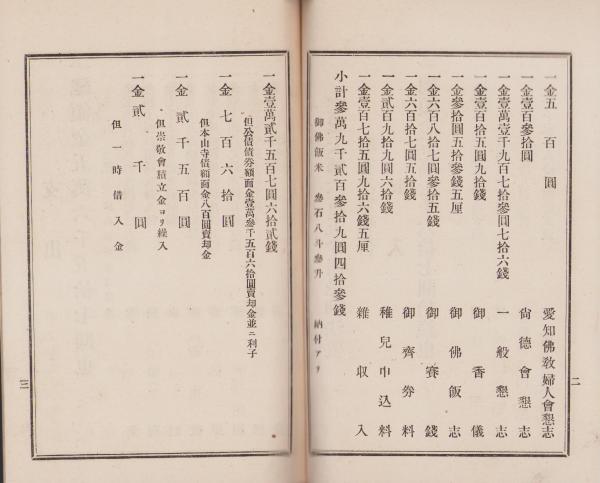 一金五百圓　愛知佛敎婦人會懇志
一金壹百參拾圓　尙德會懇志
一金壹萬壹千九百七拾參圓七拾六錢　一般懇志
一金壹百拾五圓九拾錢　御香儀
一金參拾圓五拾參錢五厘　御佛飯志
一金六百八拾七圓參拾五錢　御賽錢
一金六百拾七圓五拾錢　御齊券料
一金貳百九拾九圓六拾錢　稚兒申込料
一金壹百七拾五圓九拾六錢五厘　雜收入
小計參萬九千貳百參拾九圓四拾參錢
御佛飯米　參石八斗參升　納付アリ
二
一金壹萬貳千五百七圓六拾貳錢
但公債債券額面金壹萬參千五百六拾圓賣却金並ニ利子
一金七百六拾圓
但本山寺債額面金八百圓賣却金
一金貳千五百圓
但崇敬會積立金ヨリ繰入
一金貳千圓
但一時借入金
三